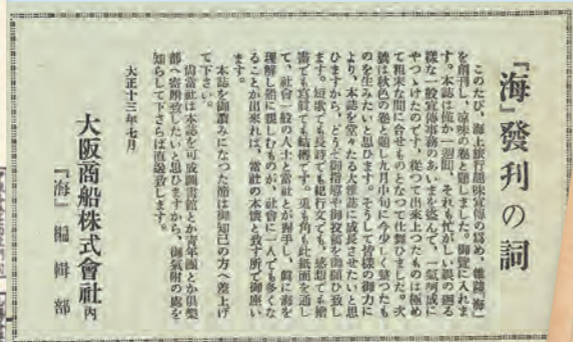 『海』發刊の詞
このたび、海上旅行趣味宣傳の爲め、雜誌『海』
を創刊し、涼味の卷と題しました。御覽に入れま
す。本誌は僅か一週間、それも忙がしい眼の廻る
樣な一般宣傳事務のあいまを盜んで、一氣呵成に
やつゝけたのです、從つて出來上つたものは極め
て粗末な間に合せものとなつて仕舞ひました。次
號は秋色の卷と題し九月中旬に今少しく整つたも
のを生みたいと思ひます。そうして皆樣の御力に
より、本誌を堂々たる大雜誌に成長させたいと思
ひますから、どうぞ御指導や御投稿を御願ひ致し
ます。短歌でも長詩でも紀行文でも、感想でも繪
畫でも寫眞でも結構です。兎も角も此紙面を通し
て、社會一般の人士と當社とが握手し、眞に海を
理解し船に親しむものが、社會に一人でも多くな
ることが出來れば、當社の本懷と致す所で御座い
ます。
本誌を御讀みになつた節は御知己の方へ差上げ
て下さい。
尙當社は本誌を可成圖書館とか靑年團とか俱樂
部へ寄贈致したいと思ひますから、御氣附の處を
知らして下さらば直送致します。
大正十三年七月
大阪商船株式會社內
『海』編輯部